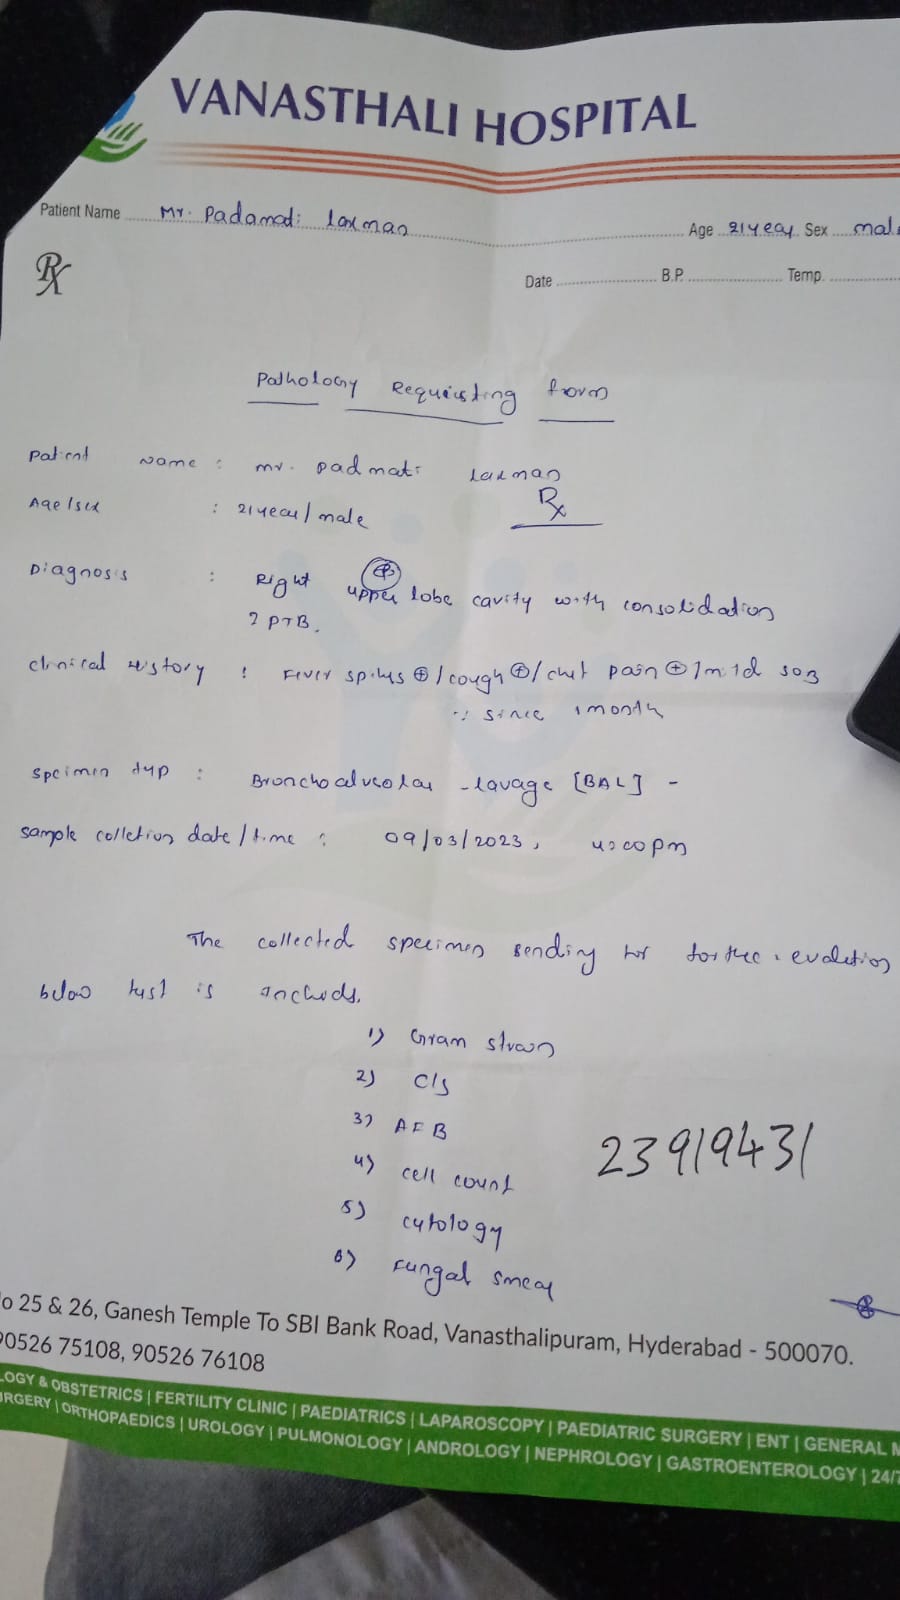 VANASTHALI HOSPITAL
Patient Name Mr. Padamati Laxman
Age 21 year Sex male
Rx
Date B.P. Temp.
Pathology Requisting form
Patient Name : mr. padmati Laxman
Age/sex : 21 year/male Rx
Diagnosis : Right upper lobe cavity with consolidation
? PTB.
clinical History : Fever spikes ⊕/cough ⊕/chet pain ⊕/mild SOB
∵ since 1 month
Specimen typ : Bronchoalveolar -lavage [BAL] -
Sample colletion date/time : 09/03/2023, 4:00pm
The collected specimen sending for forther evalution
below test is includs.
1) Gram strain
2) C/S
3) AFB
4) cell count
5) cytology
6) Fungal smear
23919431
o 25 & 26, Ganesh Temple To SBI Bank Road, Vanasthalipuram, Hyderabad - 500070.
90526 75108, 90526 76108
LOGY & OBSTETRICS | FERTILITY CLINIC | PAEDIATRICS | LAPAROSCOPY | PAEDIATRIC SURGERY | ENT | GENERAL M
URGERY | ORTHOPAEDICS | UROLOGY | PULMONOLOGY | ANDROLOGY | NEPHROLOGY | GASTROENTEROLOGY | 24/7